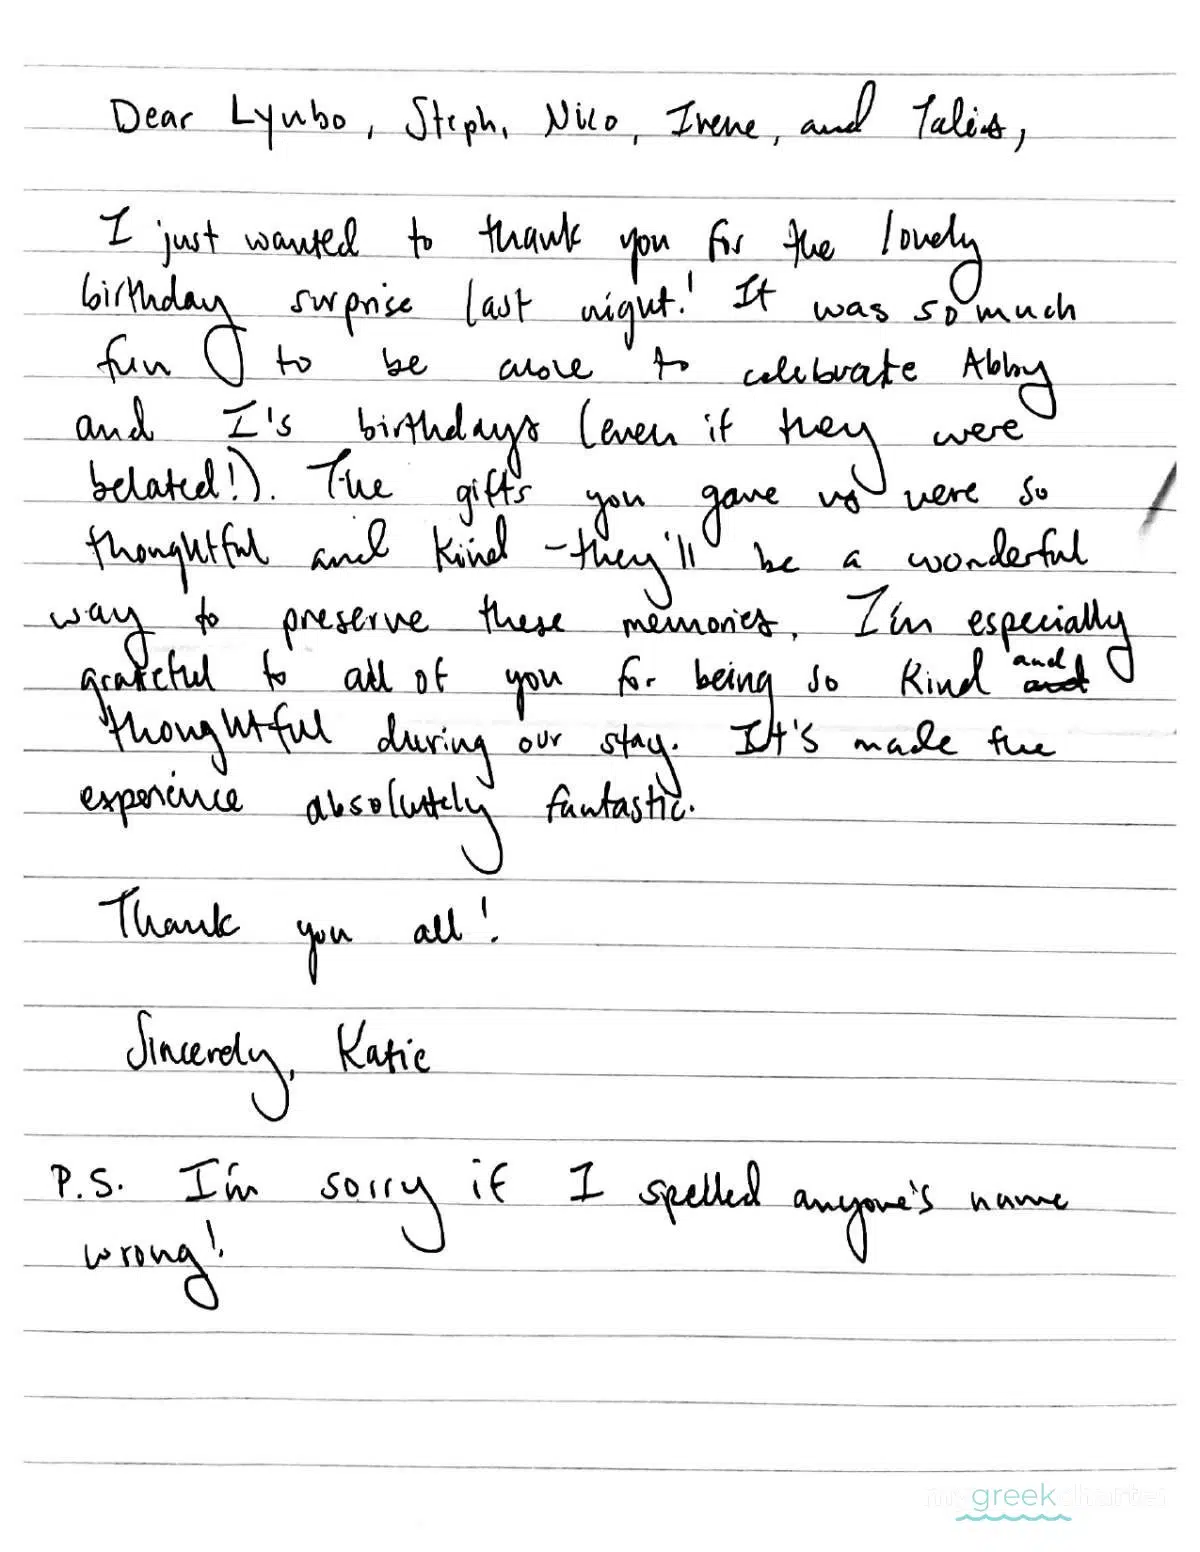 Dear Lyubo, Steph, Nico, Irene, and Talia,
I just wanted to thank you for the lovely
birthday surprise last night! It was so much
fun to be able to celebrate Abby
and I's birthdays (even if they were
belated!). The gifts you gave us were so
thoughtful and kind - they'll be a wonderful
way to preserve these memories. I'm especially
grateful to all of you for being so kind and
thoughtful during our stay. It's made the
experience absolutely fantastic.
Thank you all!
Sincerely, Katie
P.S. I'm sorry if I spelled anyone's name
wrong!
my greek charter